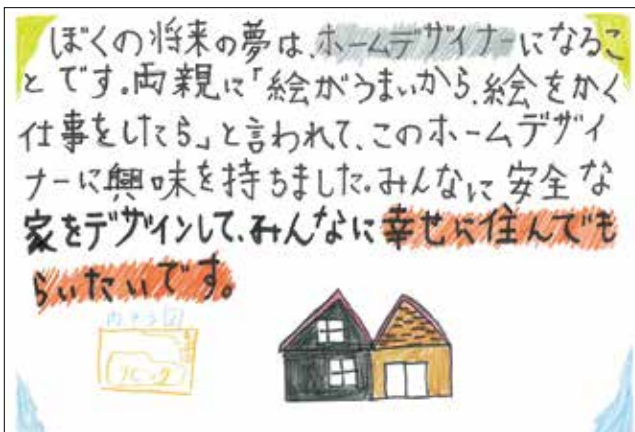 ぼくの将来の夢は、ホームデザイナーになるこ
とです。両親に「絵がうまいから、絵をかく
仕事をしたら」と言われて、このホームデザイ
ナーに興味を持ちました。みんなに安全な
家をデザインして、みんなに幸せに住んでも
らいたいです。